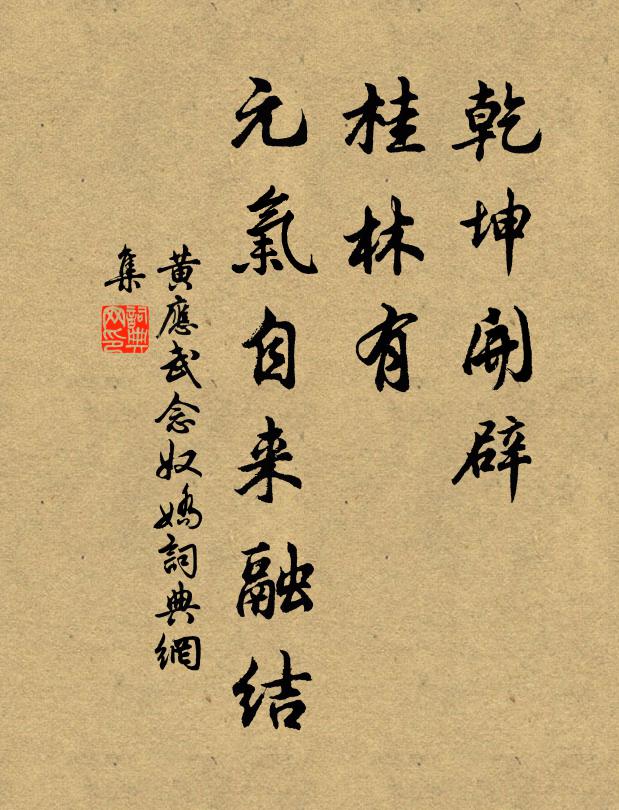 乾坤開辟
桂林有
元氣自来融结
黃應武念奴嬌詞典網
集
詞典
网印